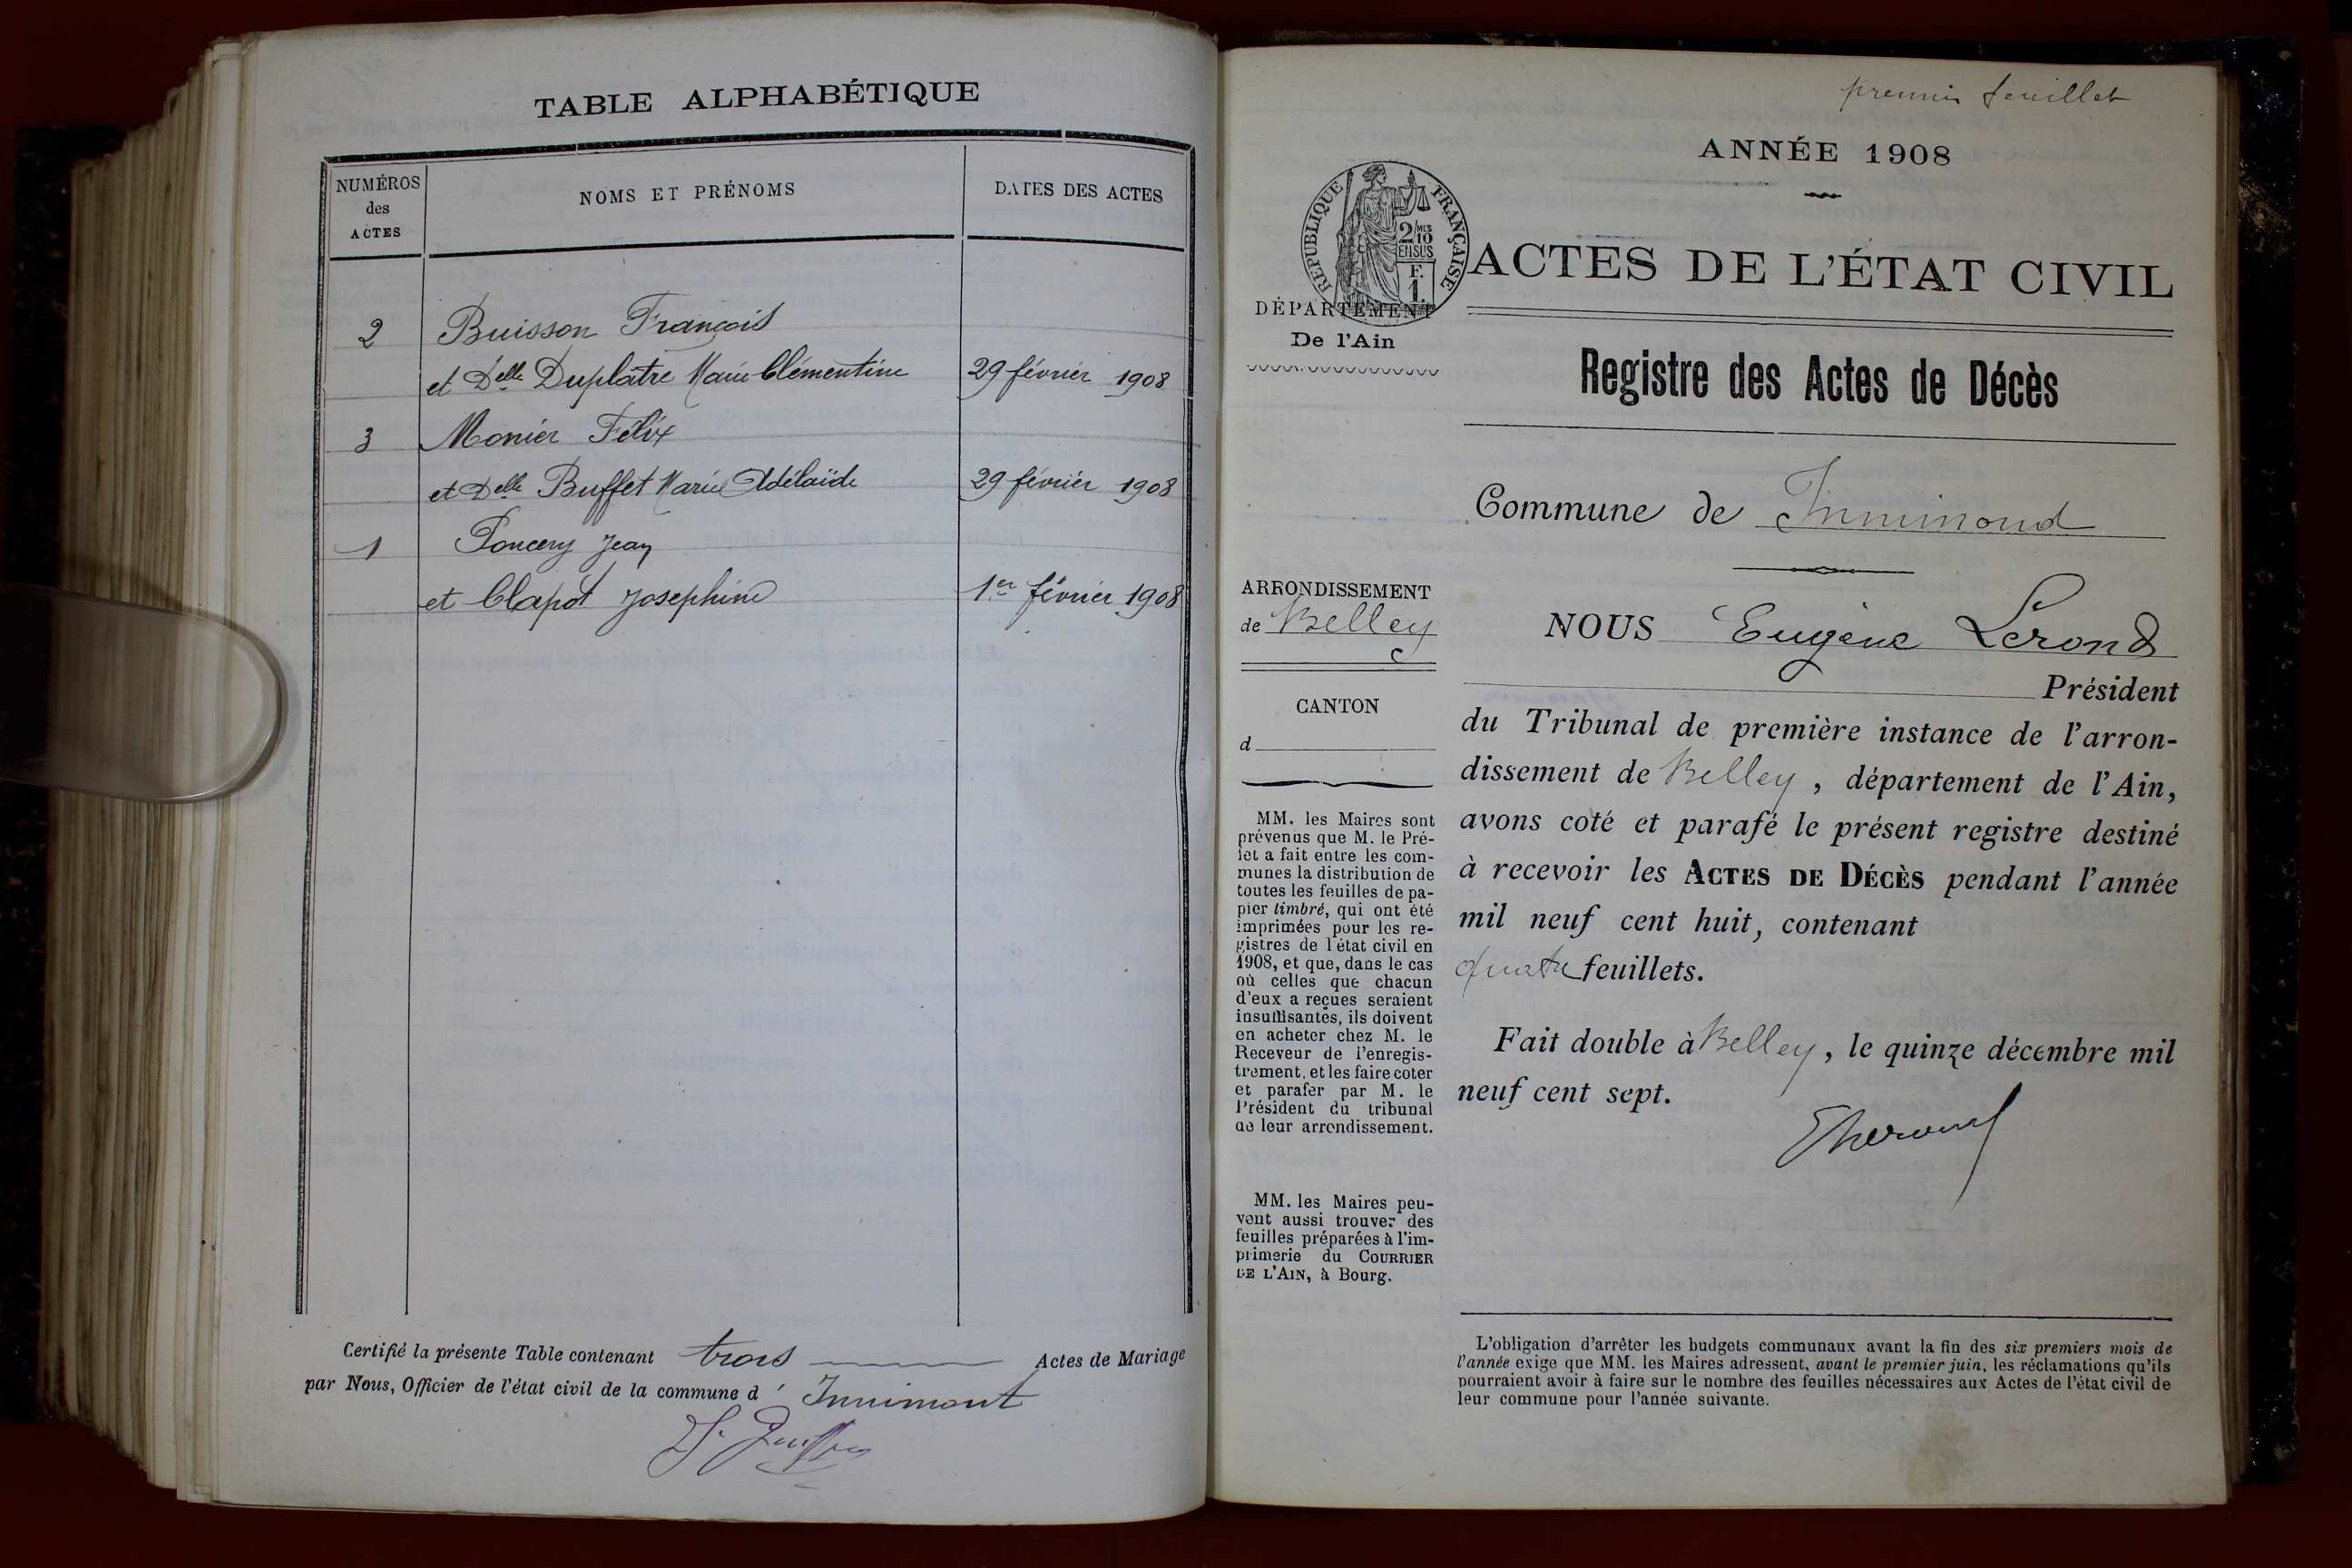 TABLE ALPHABÉTIQUE
NUMÉROS
des
ACTES
NOMS ET PRÉNOMS
DATES DES ACTES
2 Buisson François
et Delle Duplâtre Marie Clémentine 29 février 1908
3 Monier Félix
et Delle Buffet Marie Adélaïde 29 février 1908
1 Poncery Jean
et Clapot Josephine 1er février 1908
Certifié la présente Table contenant trois Actes de Mariage
par Nous, Officier de l'état civil de la commune d' Innimont
premier feuillet
ANNÉE 1908
REPUBLIQUE FRANÇAISE
2/10 MES
EN SUS
F.
1.
ACTES DE L'ÉTAT CIVIL
DÉPARTEMENT
De l'Ain
Registre des Actes de Décès
Commune de Innimond
ARRONDISSEMENT
de Belley
CANTON
d
MM. les Maires sont
prévenus que M. le Pré-
fet a fait entre les com-
munes la distribution de
toutes les feuilles de pa-
pier timbré, qui ont été
imprimées pour les re-
gistres de l'état civil en
1908, et que, dans le cas
où celles que chacun
d'eux a reçues seraient
insuffisantes, ils doivent
en acheter chez M. le
Receveur de l'enregis-
trement, et les faire coter
et parafer par M. le
Président du tribunal
de leur arrondissement.
MM. les Maires peu-
vent aussi trouver des
feuilles préparées à l'im-
primerie du COURRIER
DE L'AIN, à Bourg.
NOUS Eugène Lerond
Président
du Tribunal de première instance de l'arron-
dissement de Belley, département de l'Ain,
avons coté et parafé le présent registre destiné
à recevoir les ACTES DE DÉCÈS pendant l'année
mil neuf cent huit, contenant
quatre feuillets.
Fait double à Belley, le quinze décembre mil
neuf cent sept.
L'obligation d'arrêter les budgets communaux avant la fin des six premiers mois de
l'année exige que MM. les Maires adressent, avant le premier juin, les réclamations qu'ils
pourraient avoir à faire sur le nombre des feuilles nécessaires aux Actes de l'état civil de
leur commune pour l'année suivante.